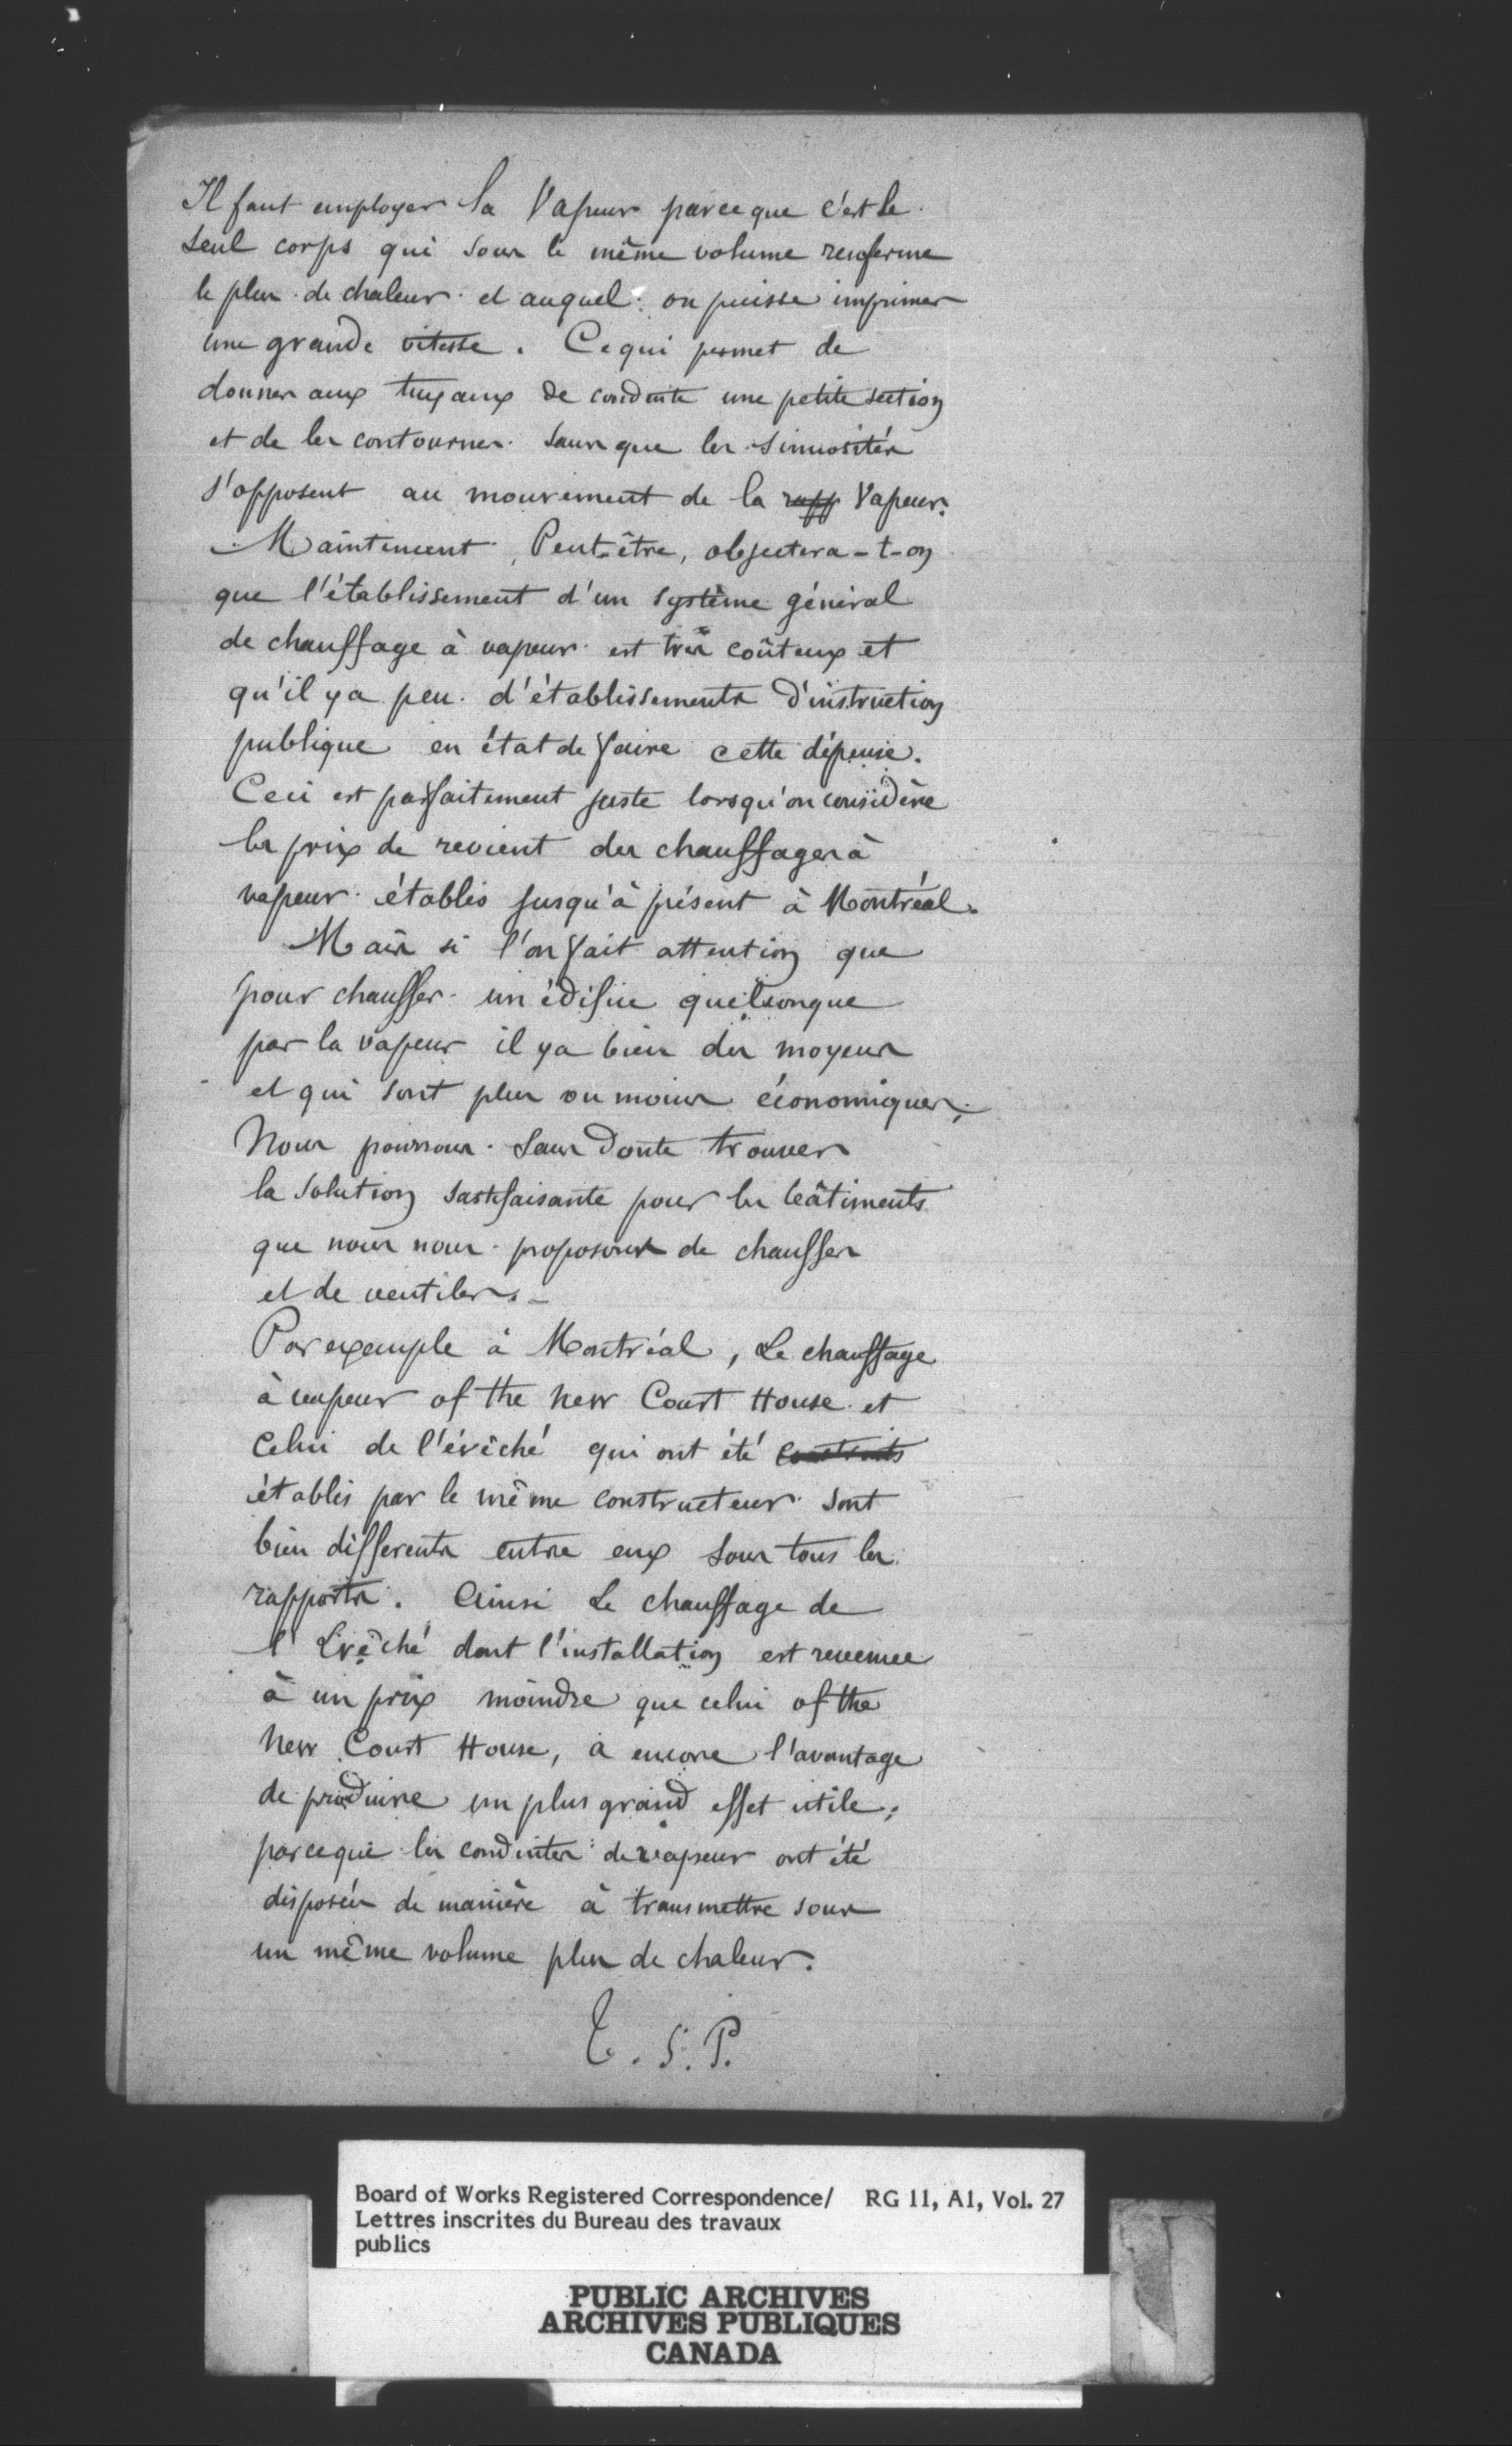 Il faut employer la Vapeur parceque c'est le
seul corps qui sous le même volume renferme
le plus de chaleur et auquel on puisse imprimer
une grande vitesse. Ce qui permet de
donner aux tuyaux de conduite une petite section
et de les contourner sans que les sinuosités
s'opposent au mouvement de la rapp Vapeur.
Maintenent, Peut-être, objectera-t-on
que l'établissement d'un système général
de chauffage à vapeur est très coûteux et
qu'il y a peu d'établissements d'instruction
publique en état de faire cette dépense.
Ceci est parfaitement juste lorsqu'on considère
les prix de revient des chauffages à
vapeur établis jusqu'à présent à Montréal.
Mais si l'on fait attention que
pour chauffer un édifice quelconque
par la vapeur il y a bien des moyens
et qui sont plus ou moins économiques;
Nous pourrons sans doute trouver
la solution satisfaisante pour les bâtiments
que nous nous proposons de chauffer
et de ventiler.-
Par exemple à Montréal, Le chauffage
à vapeur of the New Court House et
celui de l'évêché qui ont été construits
établis par le même constructeur sont
bien differents entre eux sous tous les
rapports. Ainsi Le chauffage de
l'Evêché dont l'installation est revenue
à un prix moindre que celui of the
New Court House, a encore l'avantage
de produire un plus grand effet utile;
parceque les conduites de vapeur ont été
disposées de manière à transmettre sous
un même volume plus de chaleur.
T. S. P.
Board of Works Registered Correspondence/ RG 11, A1, Vol. 27
Lettres inscrites du Bureau des travaux
publics
PUBLIC ARCHIVES
ARCHIVES PUBLIQUES
CANADA